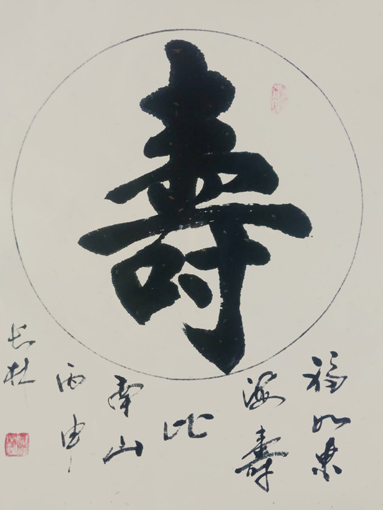 壽
福如東
海壽
比
南山
丙申